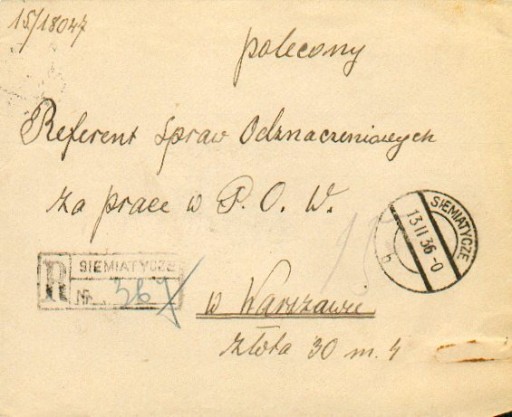 15/18047
polecony
Referent Spraw Odznaczeniowych
za prace w P. O. W.
SIEMIATYCZE
13 II 36-0
b
R SIEMIATYCZE
Nr. 367
w Warszawie
Złota 30 m. 4